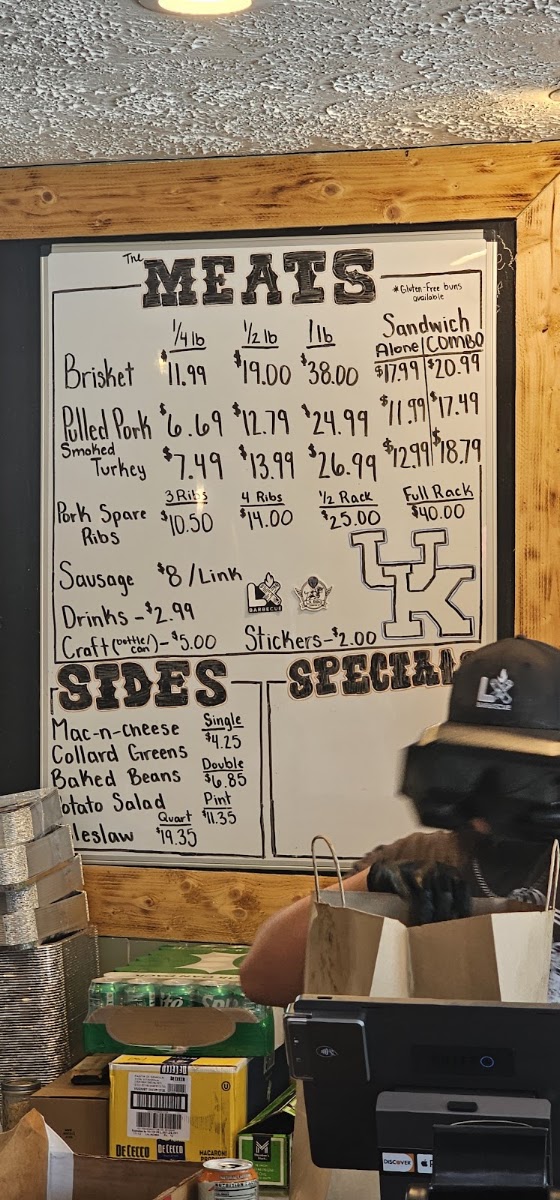 The MEATS
*Gluten-Free buns available
1/4 lb 1/2 lb 1 lb Sandwich
Alone COMBO
Brisket $11.99 $19.00 $38.00 $17.99 $20.99
Pulled Pork $6.69 $12.79 $24.99 $11.99 $17.49
Smoked Turkey $7.49 $13.99 $26.99 $12.99 $18.79
3 Ribs 4 Ribs 1/2 Rack Full Rack
Pork Spare Ribs $10.50 $14.00 $25.00 $40.00
Sausage $8/Link
LX BARBECUE
UK
Drinks - $2.99
Craft (bottle/can) - $5.00 Stickers - $2.00
SIDES
SPECIALS
Mac-n-cheese Single
$4.25
Collard Greens Double
Baked Beans $6.85
Potato Salad Pint
$11.35
leslaw Quart
$19.35
LX
DE CECCO
DE CECCO DE CECCO MACARONI
DISCOVER